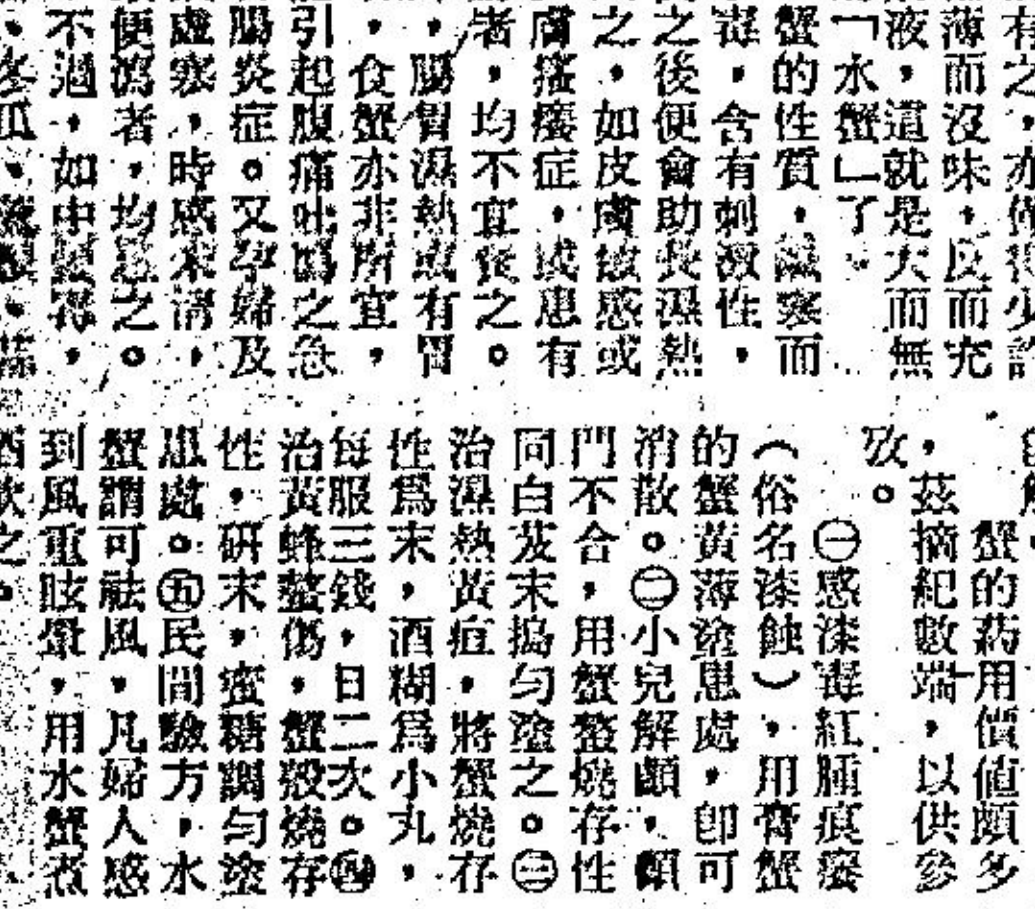 有之,亦僅得少許
薄而沒味,反而充
液,這就是大而無
「水蟹」了
蟹的性質,鹹寒而
毒,含有刺激性,
之後便會助長濕熱
之,如皮膚敏感或
膚瘙癢症,或患有
者,均不宜食之。
,腸胃濕熱或有胃
,食蟹亦非所宜,
引起腹痛吐瀉之急
腸炎症。又孕婦及
虛寒,時感未清,
便瀉者,均忌之。
不過,如中蟹毒,
、冬瓜、
蟹的葯用價值頗多
,茲摘紀數端,以供參
攷。
㊀感漆毒紅腫痕癢
(俗名漆蝕),用膏蟹
的蟹黃薄塗患處,卽可
消散。㊁小兒解顱、顱
門不合,用蟹螯燒存性
同白芨末搗勻塗之。㊂
治濕熱黃疸,將蟹燒存
性爲末,酒糊爲小丸,
每服三錢,日二次。㊃
治黃蜂螫傷,蟹殼燒存
性,硏末,蜜糖調勻塗
患處。㊄民間驗方,水
蟹謂可祛風,凡婦人感
到風重眩暈,用水蟹煮
酒飲之。